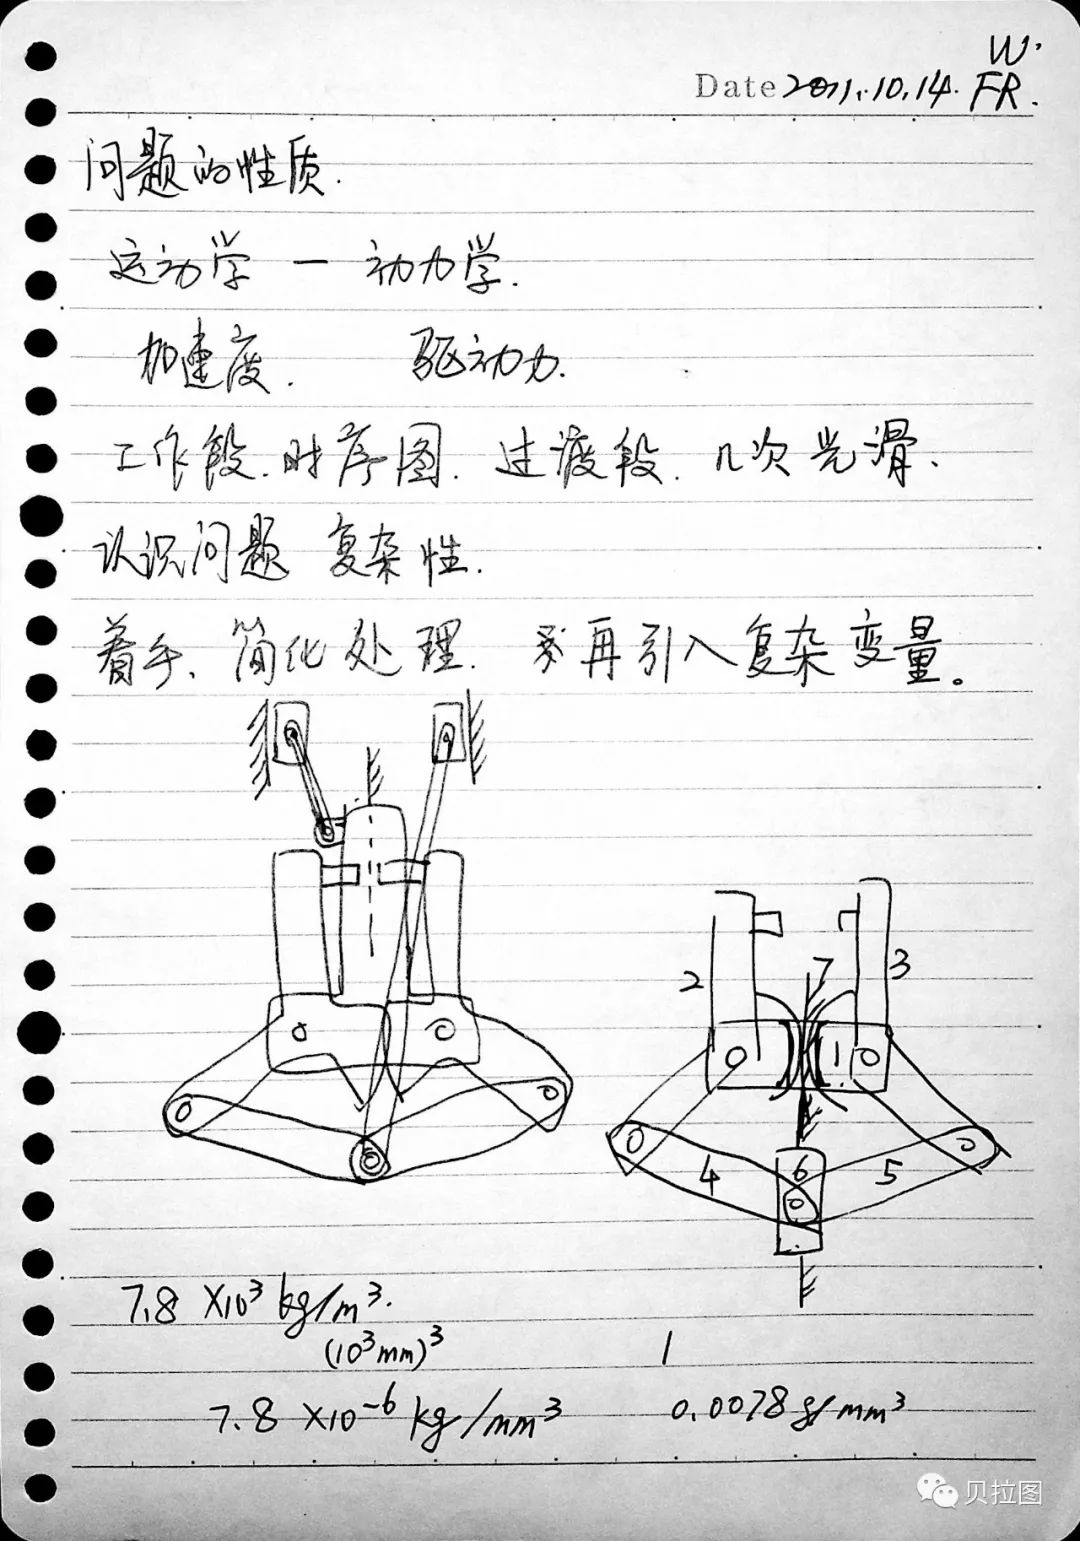 W.
Date 2021.10.14. FR.
问题的性质.
运动学 — 动力学.
加速度. 驱动力.
工作段. 时序图. 过渡段. 几次光滑.
认识问题 复杂性.
着手、简化处理. 再引入复杂变量。
2 7 3
1
4 6 5
7.8 ×10³ kg/m³.
(10³mm)³
7.8 ×10⁻⁶ kg/mm³ 0.0078 g/mm³
贝拉图